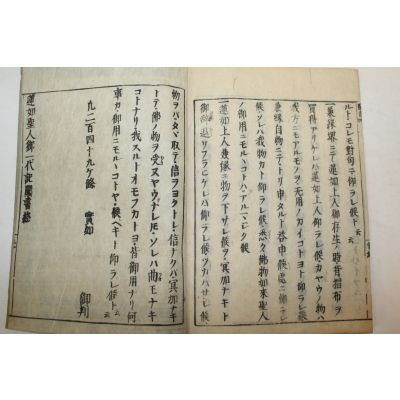 ルト コレモ對句ニ仰ラレ候ト云云
一 兼縁堺ニテ蓮如上人御存生ノ時背摺布ヲ
買得アリケレハ蓮如上人仰ラレ候カヤウノ物ハ
我方ニモアルモノヲ无用ノカイコトヨト仰ラレ候
兼縁自物ニテトリ申タルト答申候處ニ仰ラレ
候ソレハ我物カト仰ラレ候悉ク佛物如來聖人
ノ御用ニモルヽコトハアルマシク候
一 蓮如上人兼縁ニ物ヲ下サレ候ヲ冥加ナキト
御辭退リフラヒケレハ仰ラレ候ツカハサレ候
物ヲハタヽ取テ信ヲヨクトレ信ナクハ冥加ナキ
トテ佛ノ物ヲ受ヌヤウナレトモソレハ曲モナキ
コトナリ我スルトオモフカトヨ皆御用ナリ何
事カ御用ニモルヽコトヤ候ヘキト仰ラレ候ト云云
九二百四十九ケ條 實如
御判
蓮如聖人御一代記聞書終